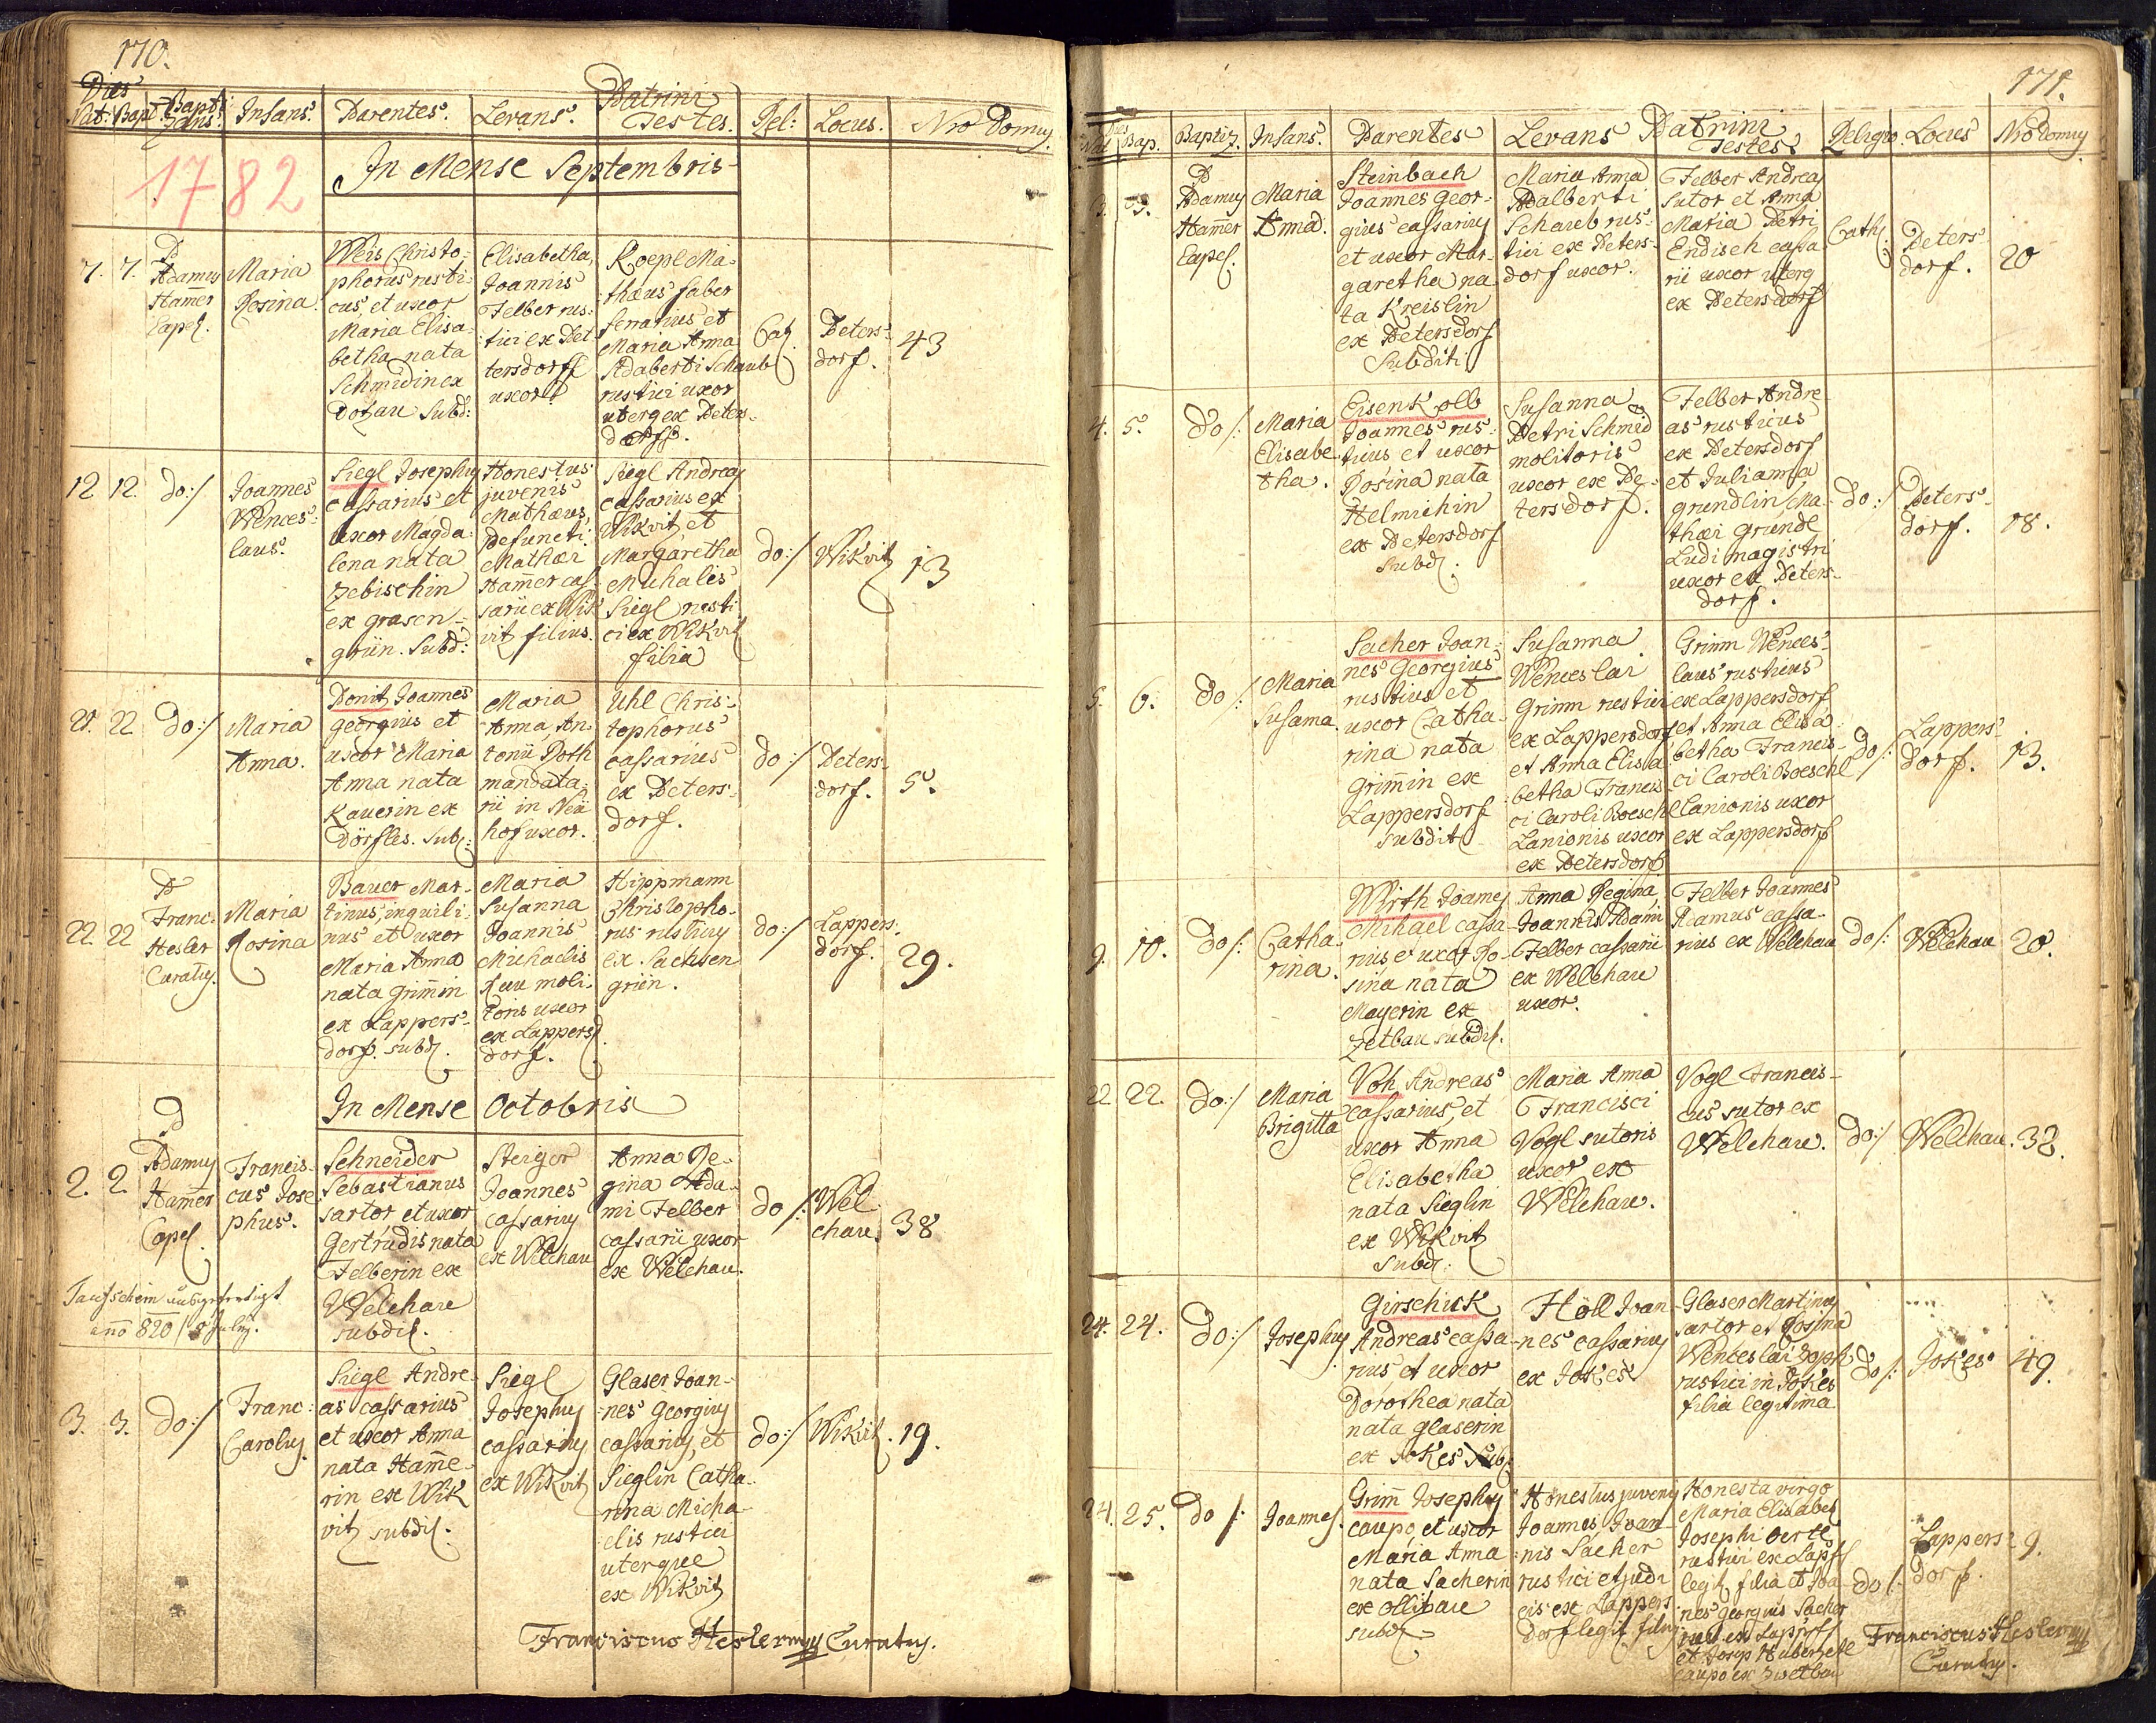 170.
Dies
Nat: Bapt: Baptizans Infans. Parentes. Levans. Patrini Testes. Rel: Locus. Nro Domus
1782
In Mense Septembris
7. 7.
P
Adamus
Hamer
Capel.
Maria
Rosina.
Weis Christo-
phorus rusti-
cus, et uxor
Maria Elisa-
betha nata
Schmidin ex
Dotzau Subd:
Elisabetha,
Joannis
Felber rus-
tici ex Pet
tersdorff
uxor
Koepl Ma-
thæus faber
ferrarius et
Maria Anna
Adaberti Schaub
rustici uxor
uterq ex Peters-
dorff.
Cat.
Peters-
dorf.
43
12 12. do:/
Joannes
Wences-
laus.
Siegl Josephus
cassarius et
uxor Magda-
lena nata
Zebischin
ex grasen-
grün. Subd:
Honestus
juvenis
Mathæus,
Defuncti
Mathæi
Hamer cas-
sarii ex Wik
vitz filius.
Siegl Andreas
cassarius ex
Wikvitz et
Margaretha
Michalis
Siegl rusti
ci ex Wikvitz
filia
do:/ Wikvitz 13
21. 22 do:/
Maria
Anna.
Donit Joannes
georgius et
uxor Maria
Anna nata
Kauerin ex
Dörfles. Subd:
Maria
Anna, An-
tonii Poth
mandata-
rii in Neü
hof uxor.
Uhl Chris-
tophorus
cassarius
ex Peters-
dorf.
do:/
Peters-
dorf.
5.
22. 22
P
Franc:
Hesler
Curatus.
Maria
Rosina
Bauer Mar-
tinus, inquili-
nus et uxor
Maria Anna
nata Grimin
ex Lappers-
dorf. subd.
Maria
Susanna
Joannis
Michaelis
moli-
toris uxor
ex Lappers
dorf.
Hippmann
Christopho-
rus rusticus
ex Sachsen
grün.
do:/
Lappers-
dorf.
29.
In Mense Octobris
2. 2.
P
Adamus
Hamer
Capel.
Francis-
cus Jose
phus.
Schneider
Sebastianus
sartor, et uxor
Gertrudis nata
Felberin ex
Welchau
subdit.
Steiger
Joannes
cassarius
ex Welchau
Anna Re-
gina Ada-
mi Felber
cassarii uxor
ex Welchau.
do:/
Wel
chau.
38
Taufschein ausgefertigt
anno 820/ 8 July.
3. 3. do:/
Franc:
Carolus.
Siegl Andre-
as cassarius
et uxor Anna
nata Hame-
rin ex Wik
vitz subdit.
Siegl
Josephus
cassarius
ex Wikvitz
Glaser Joan-
nes Georgius
cassarius, et
Sieglin Catha-
rina Micha-
elis rustici
uterque
ex Wikvitz
do:/ Wikvitz. 19.
Franciscus Hesler Curatus.
171.
Dies
Nat Bap. Baptiz. Infans. Parentes Levans Patrini Testes Religio Locus Nro Domus
3. 3.
P
Adamus
Hamer
Capel.
Maria
Anna.
Steinbach
Joannes Geor-
gius cassarius
et uxor Mar-
garetha na-
ta Kreislin
ex Petersdorf
Subditi
Maria Anna
Adalberti
Schaub rus-
tici ex Peters-
dorf uxor.
Felber Andreas
sutor et Anna
Maria Petri
Endisch cassa-
rii uxor uterq
ex Petersdorf
Cath:
Peters-
dorf.
20
4. 5. do/:
Maria
Elisabe
tha.
Eisenkolb
Joannes rus-
ticus et uxor
Rosina nata
Helmichin
ex Petersdorf
Subd.
Susanna
Petri Schmid
molitoris
uxor ex Pe-
tersdorf.
Felber Andre-
as rusticus
ex Petersdorf
et Julianna
grundlin Ma-
thæi grundl
Ludi magistri
uxor ex Peters-
dorf.
do:/
Peters-
dorf.
18.
5. 6. do/:
Maria
Susana.
Sacher Joan-
nes Georgius
rusticus et
uxor Catha-
rina nata
Grimin ex
Lappersdorf
subdit
Susanna
Wenceslai
Grimm rustici
ex Lappersdorf
et Anna Elisa
betha Francis-
ci Caroli Boeschl
Lanionis uxor
ex Petersdorf
Grimm Wences-
laus rusticus
ex Lappersdorf
et Anna Elisa-
betha Francis-
ci Caroli Boeschl
Lanionis uxor
ex Lappersdorf
do/:
Lappers-
dorf.
13.
9. 10. do/:
Catha-
rina.
Wirth Joannes
Mihael cassa-
rius et uxor Ro-
sina nata
Mayerin ex
Zetlau subdit.
Anna Regina
Joannis Adami
Felber cassarii
ex Welchau
uxor.
Felber Joannes
Adamus cassa-
rius ex Welchau
do/: Welchau 20.
22 22. do:/
Maria
Brigitta
Voh Andreas
cassarius, et
uxor Anna
Elisabetha
nata Sieglin
ex Wikvitz
subd:
Maria Anna
Francisci
Vogl sutoris
uxor ex
Welchau.
Vogl Francis-
cus sutor ex
Welchau.
do:/ Welchau. 32.
24. 24. do:/ Josephus
Girschick
Andreas cassa-
rius et uxor
Dorothea nata
nata Glaserin
ex Jokes Sub:
Höll Joan-
nes cassarius
ex Jokes
Glaser Martinus
sartor et Rosina
Wenceslai
rustici in Jokes
filia legitima
do/: Jokes 49.
24. 25. do/: Joannes.
Grim Josephus
caupo, et uxor
Maria Anna
nata Sacherin
ex Ollibau
subd.
Honestus juvenis
Joannes Joan-
nis Sacher
rustici et judi
cis ex Lappers
dorf legit. filius
Honesta virgo
Maria Elisabet
Josephi Oertl
rustici ex Lapsf
legit. filia et Joa-
nes georgius Sacher
et Josep
caupo ex Zwetbau
do/:
Lappers-
dorf.
9.
Franciscus Hesler
Curatus.